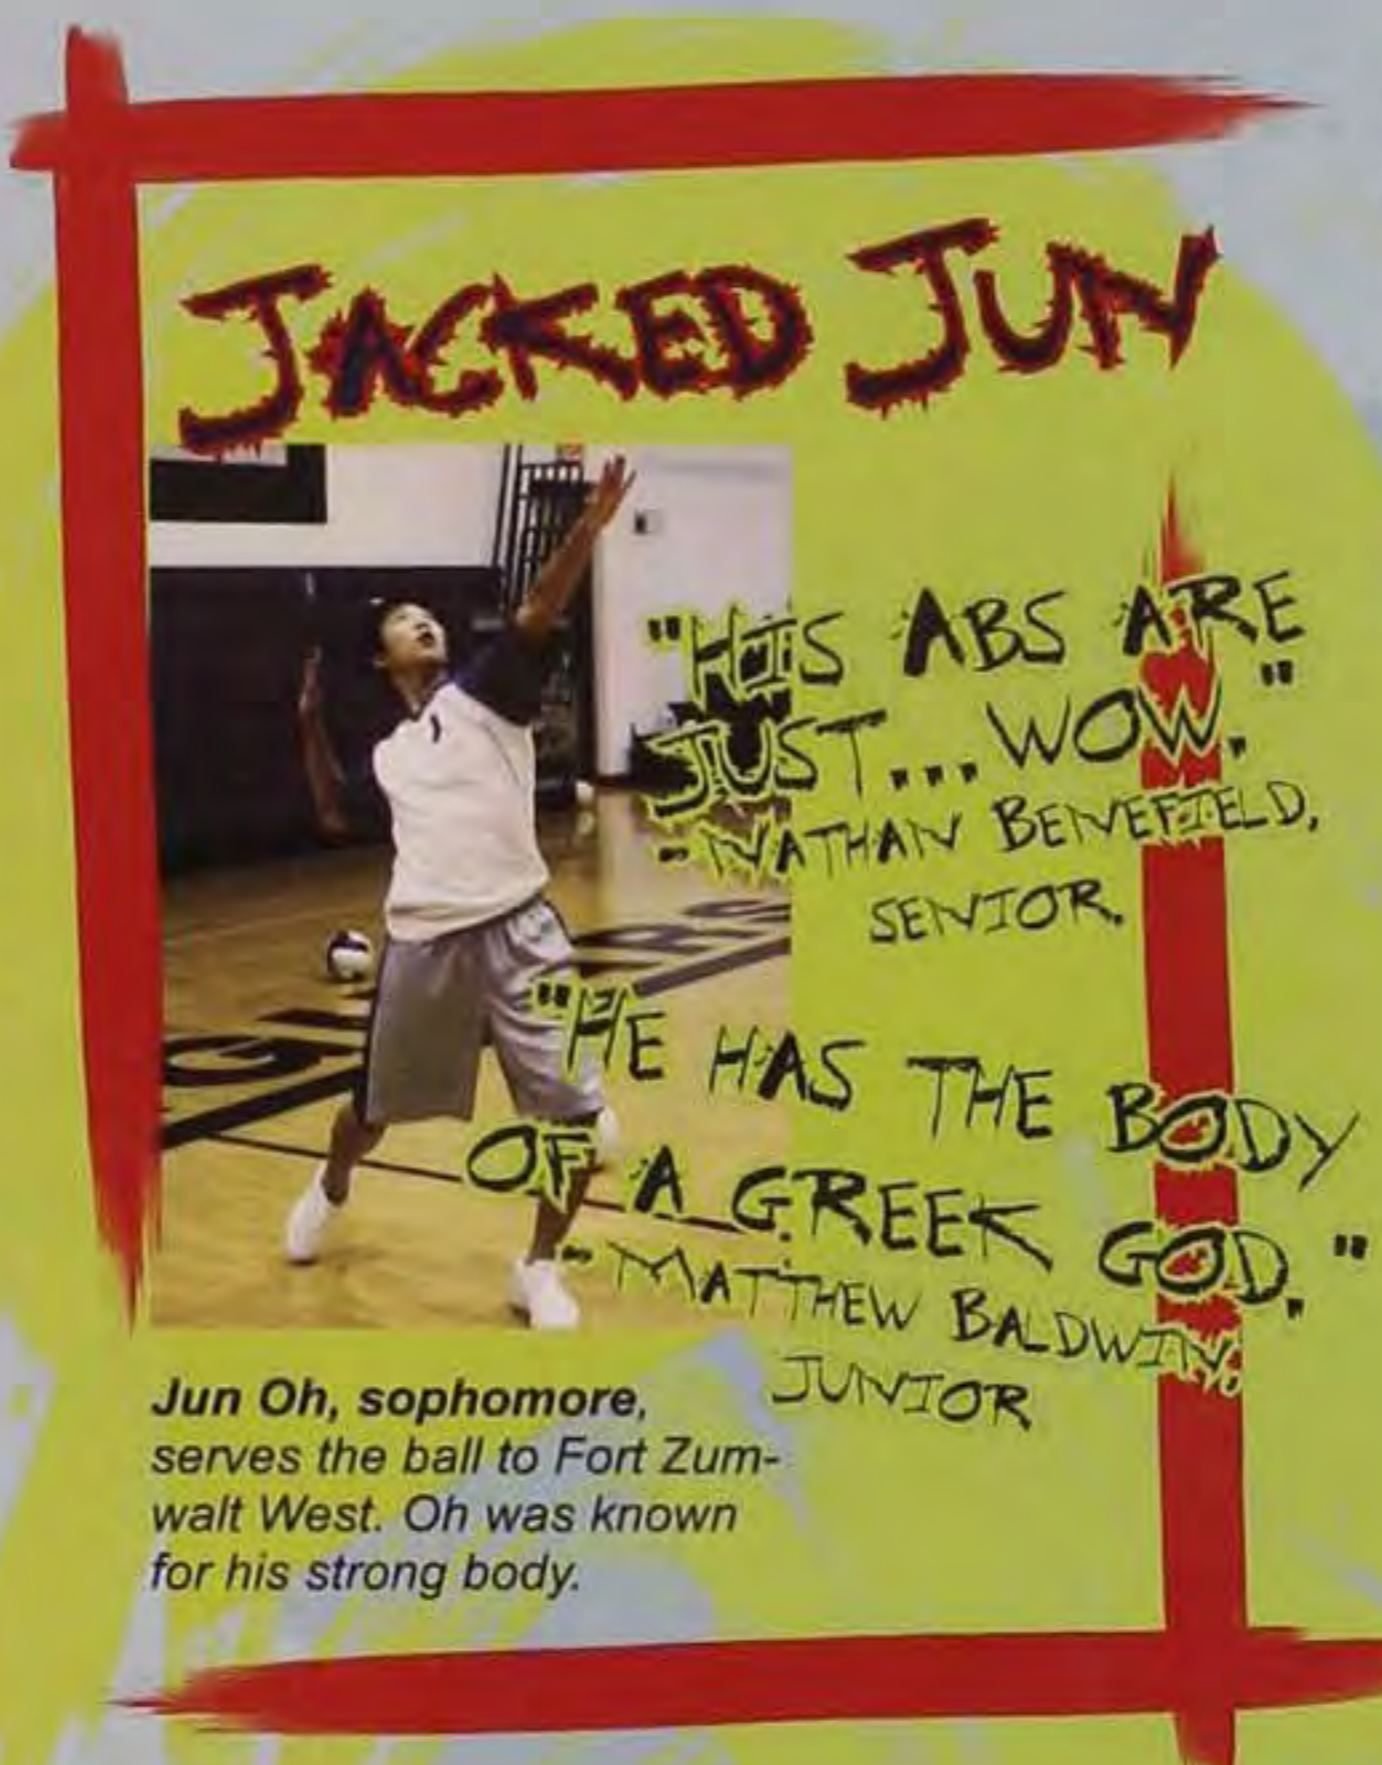 JACKED JUN
"HIS ABS ARE
JUST...WOW."
- NATHAN BENEFIELD,
SENIOR.
"HE HAS THE BODY
OF A GREEK GOD."
- MATTHEW BALDWIN,
JUNIOR
Jun Oh, sophomore,
serves the ball to Fort Zum-
walt West. Oh was known
for his strong body.